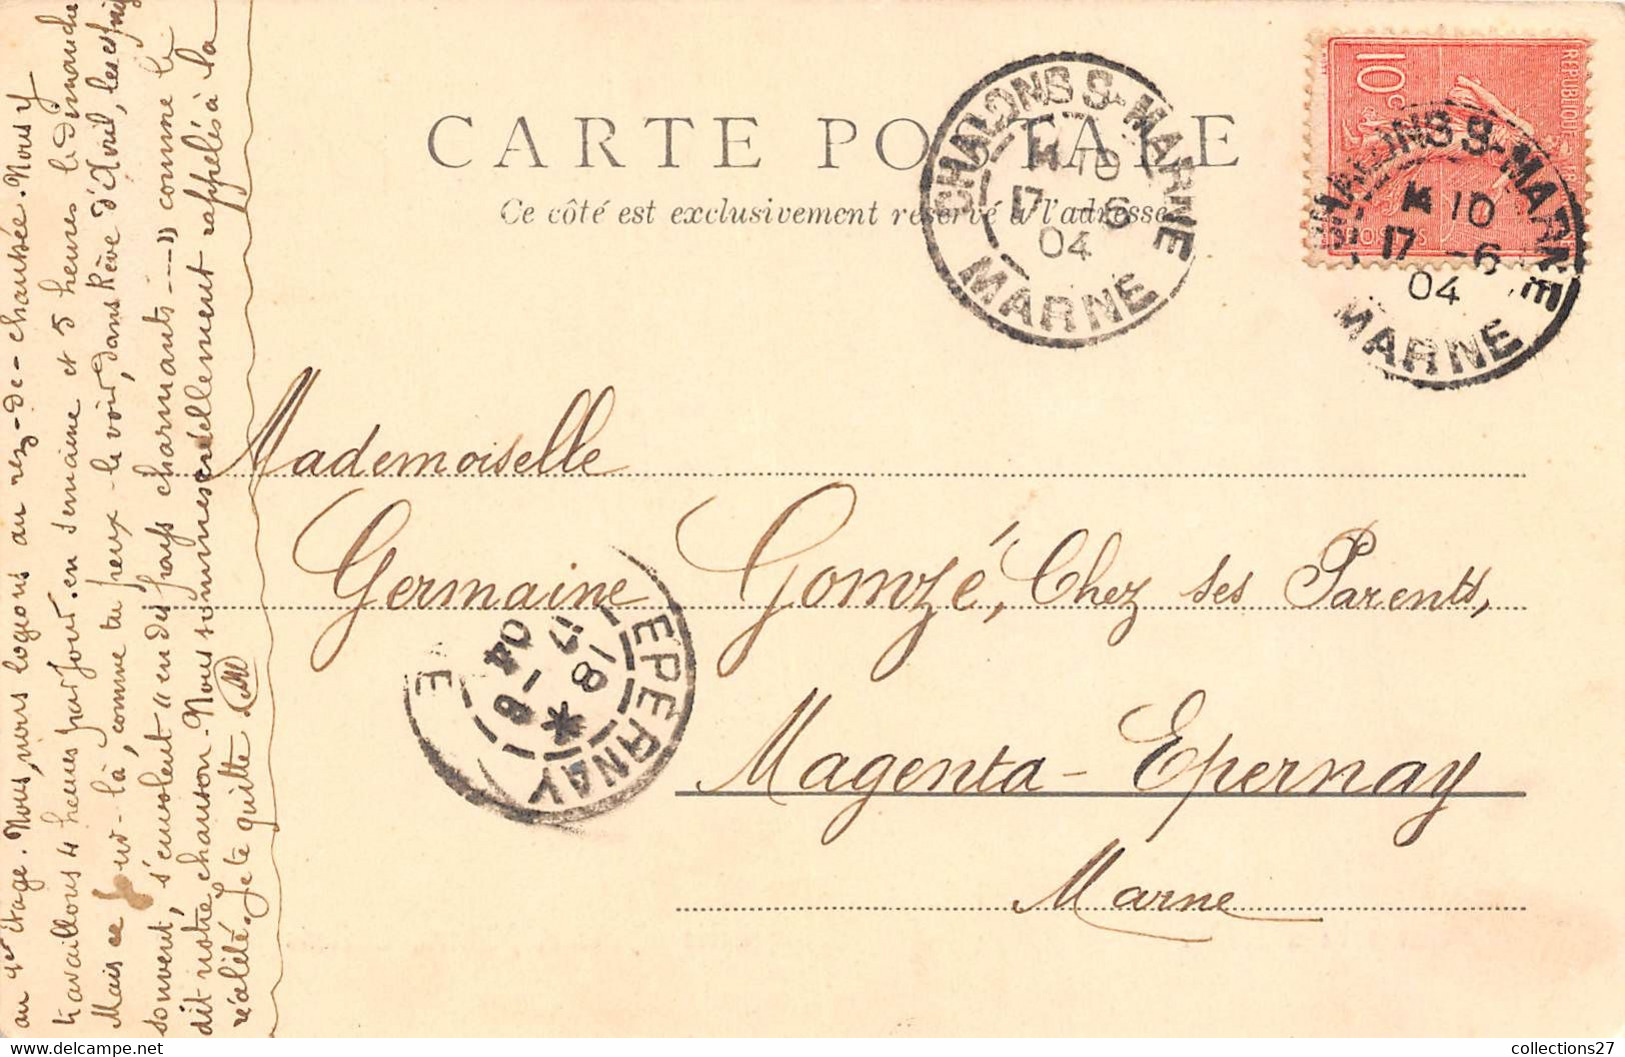 CARTE POSTALE
Ce côté est exclusivement réservé à l'adresse
CHALONS S-MARNE
10
17 -6
04
MARNE
10c
REPUBLIQUE
POSTES
CHALONS S-MARNE
10
17 -6
04
MARNE
Mademoiselle
Germaine Gomzé, Chez ses Parents,
Magenta-Epernay
Marne
EPERNAY
18
17 -6
04
E
au 1er étage. Nous, nous logions au rez-de-chaussée. Nous y
travaillons 4 heures par jour en semaine et 5 heures le dimanche
Mais ce jour-là, comme tu peux le voir, dans Rêve d'Avril, les esprits
souvent, s'envolent "en des pays charmants ---" comme le
dit notre chanson. Nous sommes réellement rappelés à la
réalité. Je te quitte. M
collections27